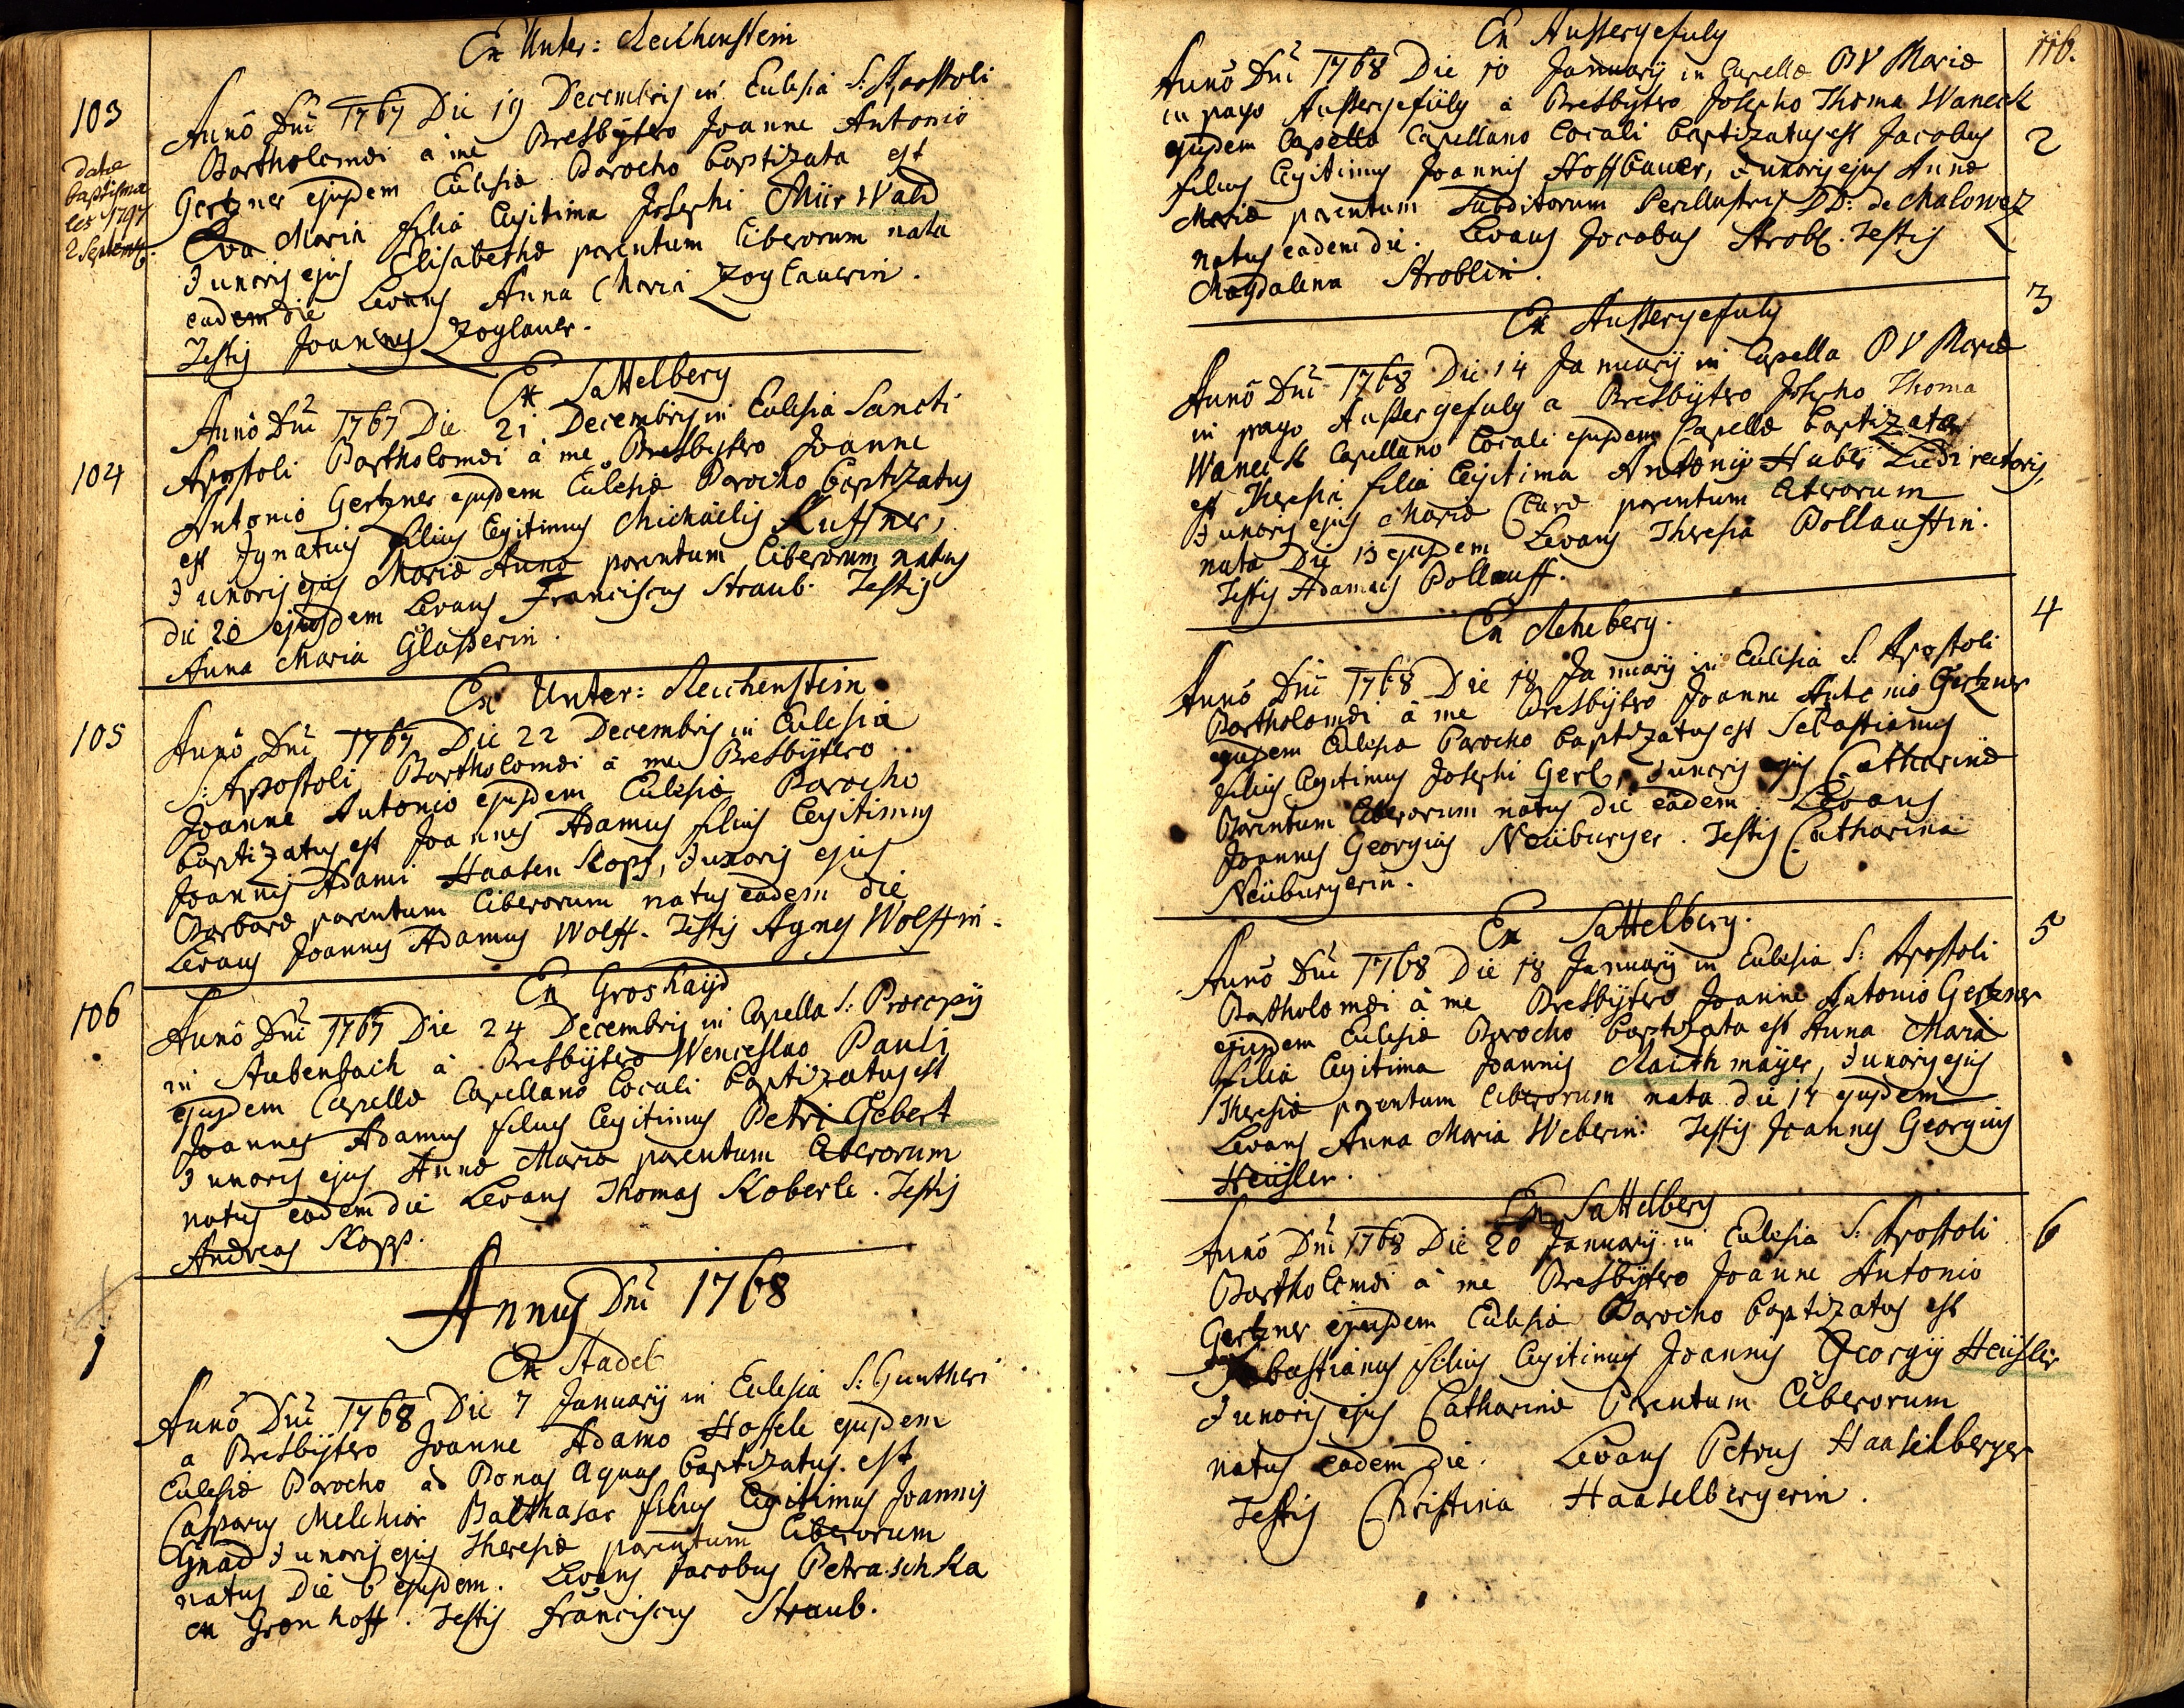 Ex Unter: Reichenstein
103
Anno Dni 1767 Die 19 Decembris in Eclesia S: Apostoli
Bartholomæi à me Presbÿtero Joanne Antonio
Gertzner ejusdem Eclesiæ Parocho baptizata est
Eva Maria filia legitima Josephi Miir Wald
Juxoris ejus Elisabethæ parentum liberorum nata
eadem die Levans Anna Maria Zoglauerin.
Testis Joannes Zoglauer.
datæ
baptisma
les 1797
2 Septemb.
Ex Sattelberg
104
Anno Dni 1767 Die 21 Decembris in Eclesia Sancti
Apostoli Bartholomæi à me Presbÿtero Joanne
Antonio Gertzner ejusdem Eclesiæ Parocho baptizatus
est Ignatius filius legitimus Michaëlis Kuffner,
Juxoris ejus Mariæ Annæ parentum liberorum natus
die 20 ejusdem Levans Franciscus Straub. Testis
Anna Maria Glaßerin.
Ex Unter: Reichenstein
105
Anno Dni 1767 Die 22 Decembris in Eclesia
S: Apostoli Bartholomæi à me Presbÿtero
Joanne Antonio ejusdem Eclesiæ Parocho
baptizatus est Joannes Adamus filius legitimus
Joannis Adami Haasen Kopf, Juxoris ejus
Barbaræ parentum liberorum natus eadem die
Levans Joannes Adamus Wolff. Testis Agnes Wolffin.
Ex Groshaÿd
106
Anno Dni 1767 Die 24 Decembris in Capella S: Procopÿ
in Stubenbach à Presbÿtero Wenceslao Pauli
ejusdem Capellæ Capellano locali baptizatus est
Joannes Adamus filius legitimus Petri Gebert
Juxoris ejus Annæ Mariæ parentum liberorum
natus eadem die Levans Thomas Koberle. Testis
Andreas Kopp.
Annus Dni 1768
1
Ex Stadel
Anno Dni 1768 Die 7 Januarÿ in Eclesia S: Guntheri
a Presbÿtero Joanne Adamo Hoffele ejusdem
Eclesiæ Parocho ad Bonas Aquas baptizatus est
Casparus Melchior Balthasar filius legitimus Joannis
Gnad Juxoris ejus Theresiæ parentum liberorum
natus Die 6 ejusdem. Levans Jacobus Petraschka
ex Grünhoff. Testis Franciscus Straub.
116.
Ex Aussergefuly
2
Anno Dni 1768 Die 10 Januarÿ in Capella B V Mariæ
in pago Aussergefuly à Presbÿtero Josepho Thoma Waneck
ejusdem Capellæ Capellano locali baptizatus est Jacobus
filius legitimus Joannis Hoffbauer, Juxoris ejus Annæ
Mariæ parentum Subditorum Perillustris DD: de Malowez
natus eadem die. Levans Jacobus Strobl. Testis
Magdalena Stroblin.
Ex Aussergefuly
3
Anno Dni 1768 Die 14 Januarÿ in Capella B V Mariæ
in pago Aussergefuly a Presbÿtero Josepho Thoma
Waneck Capellano locali ejusdem Capellæ baptizata
est Theresia filia legitima Antonÿ Huber Ludi rectoris,
Juxoris ejus Mariæ Claræ parentum liberorum
nata Die 13 ejusdem Levans Theresia Pollauffin.
Testis Adamus Pollauff.
Ex Reheberg.
4
Anno Dni 1768 Die 18 Januarÿ in Eclesia S: Apostoli
Bartholomæi à me Presbÿtero Joanne Antonio Gertzner
ejusdem Eclesiæ Parocho baptizatus est Sebastianus
filius legitimus Josephi Gerl, Juxoris ejus Catharinæ
Parentum liberorum natus die eadem. Levans
Joannes Georgius Neüburger. Testis Catharina
Neüburgerin.
Ex Sattelberg.
5
Anno Dni 1768 Die 18 Januarÿ in Eclesia S: Apostoli
Bartholomæi à me Presbÿtero Joanne Antonio Gertzner
ejusdem Eclesiæ Parocho baptizata est Anna Maria
filia legitima Joannis Raithmaÿer, Juxoris ejus
Theresiæ parentum liberorum nata die 17 ejusdem
Levans Anna Maria Weberin. Testis Joannes Georgius
Heüsler.
Ex Sattelberg
6
Anno Dni 1768 Die 20 Januarÿ in Eclesia S: Apostoli
Bartholomæi à me Presbÿtero Joanne Antonio
Gertzner ejusdem Eclesiæ Parocho baptizatus est
Sebastianus filius legitimus Joannis Georgÿ Heüsler
Juxoris ejus Catharinæ Parentum liberorum
natus eadem die. Levans Petrus Haaselberger
Testis Christina Haaselbergerin.